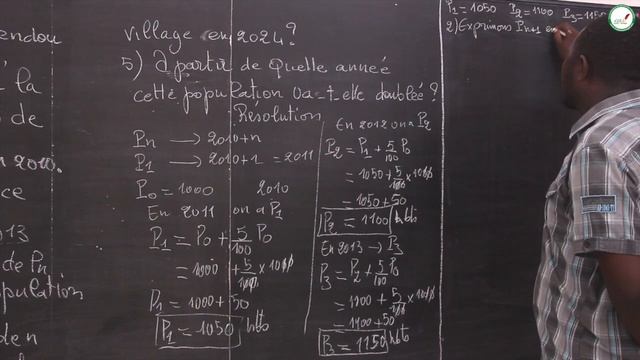 endou
la
de
n 2010.
ce
13
de Pn
pulation
de n
village en 2024?
5) A partir de quelle année
cette population va-t-elle doublée ?
Résolution
Pn → 2010+n
P1 → 2010+1 = 2011
P0 = 1000 2010
En 2011 on a P1
P1 = P0 + 5/100 P0
= 1000 + 5/100 × 1000
P1 = 1000 + 50
P1 = 1050 hbts
En 2012 on a P2
P2 = P1 + 5/100 P0
= 1050 + 5/100 × 1000
= 1050 + 50
P2 = 1100 hbts
En 2013 → P3
P3 = P2 + 5/100 P0
= 1100 + 5/100 × 1000
= 1100 + 50
P3 = 1150 hbts
P1 = 1050 P2 = 1100 P3 = 1150
2) Exprimons Pn+1 en